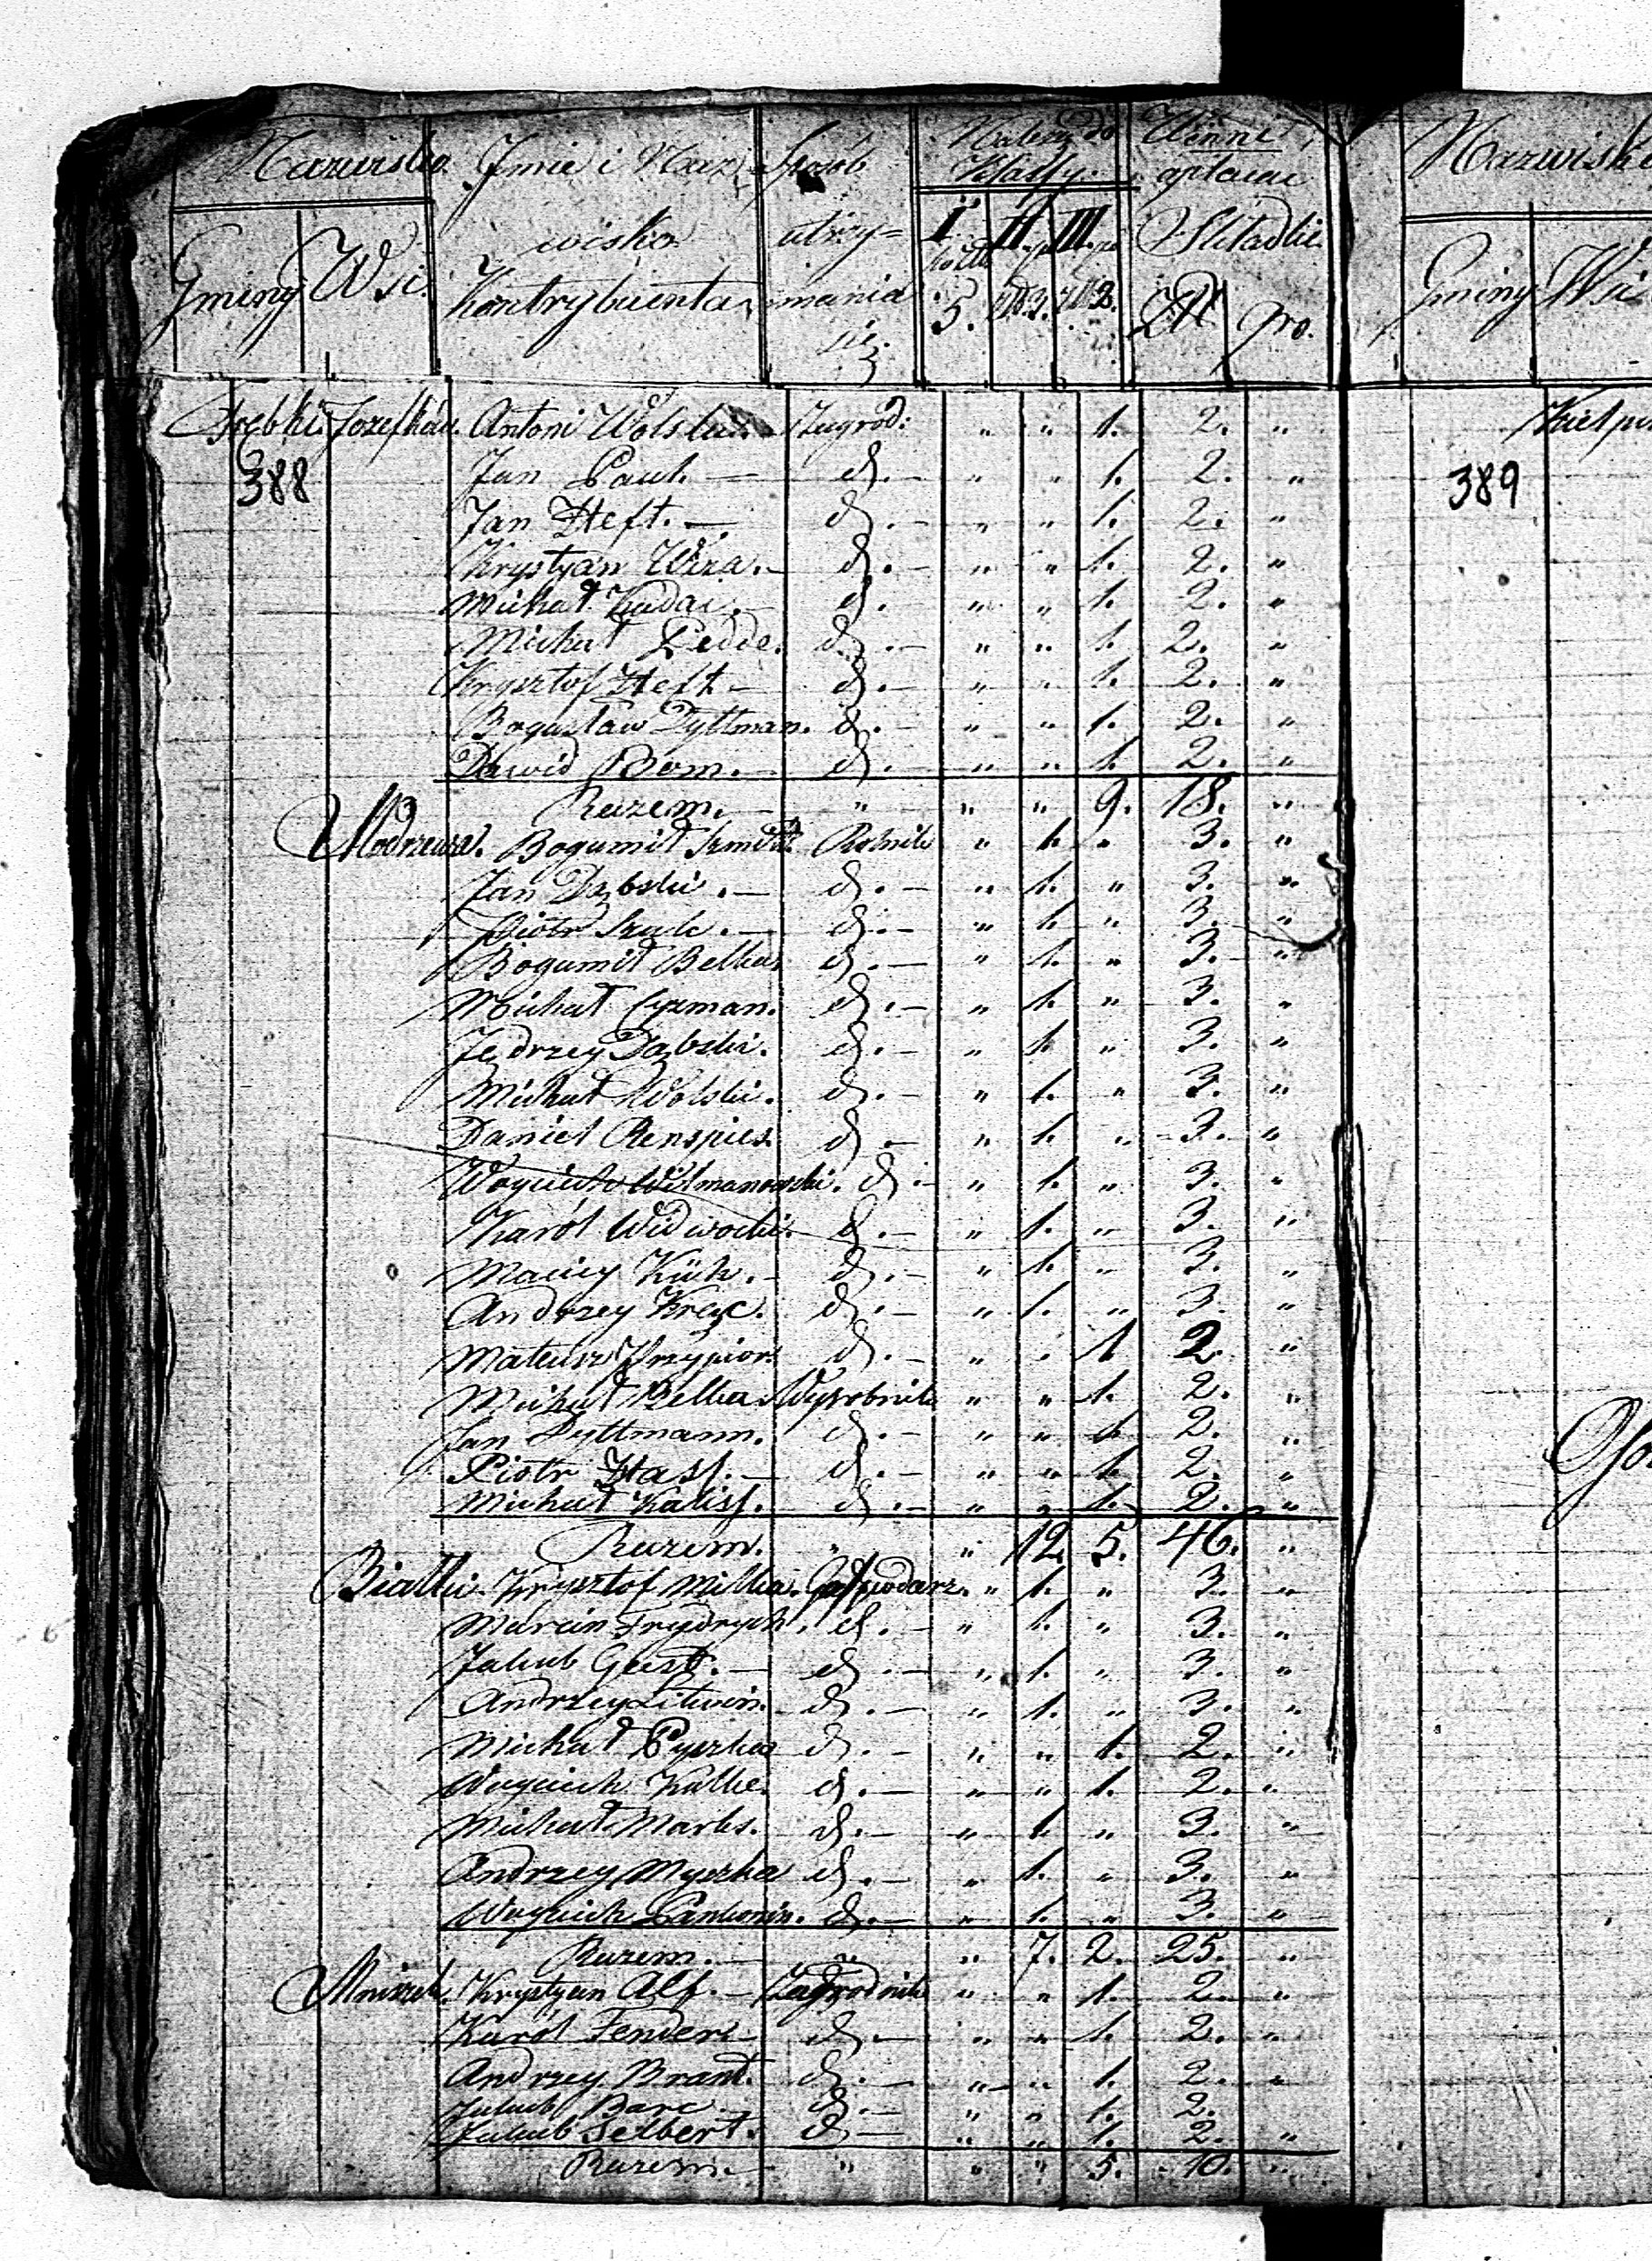 Nazwisko Jmie i Naz Sposób Należy do Winni Nazwisko
Klassy. opłacać
wisko utrzy= I. II. III. Składki.
Gminy Wsi. Kontrybuenta mania Złt gro. Gminy Wsi
się. 5.
Józefków. Antoni Wolski Zagrod: " " 1. 2. "
388 Jan Pauh. — d. — " " 1. 2. " 389
Jan Heft. — d. — " " 1. 2. "
Krystyan Wiza. d. — " " 1. 2. "
Michał Kudai. d. — " " 1. 2. "
Michał Pedde. d. — " " 1. 2. "
Krysztof Heft — d. — " " 1. 2. "
Bogusław Dyttman. d. — " " 1. 2. "
Dawid Bom. — d. — " " 1. 2. "
Razem. — " " " 9. 18. "
Modrzewa. Bogumił Szmidt Rolnik " 1. " 3. "
Jan Dąbski. — d. — " 1. " 3. "
Piotr Szulc. — d. — " 1. " 3. "
Bogumił Belka. d. — " 1. " 3. "
Michał Cyzman. d. — " 1. " 3. "
Jędrzey Dąbski. d. — " 1. " 3. "
Michał Wolski. d. — " 1. " 3. "
Daniel Renspies. d. — " 1. " 3. "
Woyciech Wilmanowski. d. — " 1. " 3. "
Karól Widwocki. d. — " 1. " 3. "
Maciey Küh. — d. — " 1. " 3. "
Andrzey Krec. d. — " 1. " 3. "
Mateusz d. — " " 1 2 "
Michał Belka. Wyrobnik " " 1. 2. "
Jan Dyttmann. d. — " " 1. 2. "
Piotr Hass. — d. — " " 1. 2. "
Michał Kaliss. d. — " " 1. 2. "
Razem. " " 12. 5. 46. "
Białki. Krysztof Milka. Gospodarz. " 1. " 3. "
Marcin Frydrych. d. — " 1. " 3. "
Jakub Geist. — d. — " 1. " 3. "
Andrzey Litwin. d. — " 1. " 3. "
Michał Pyszka d. — " " 1. 2. "
Woyciech Kalke. d. — " " 1. 2. "
Michał Marks. d. — " 1. " 3. "
Andrzey Myszka d. — " 1. " 3. "
Woyciech Pankonin. d. — " 1. " 3. "
Razem. — " " 7. 2. 25. "
Mniszek. Krystyan Alf. — Zagrodnik " " 1. 2. "
Karól Fender — d. — " " 1. 2. "
Andrzey Brant. d. — " " 1. 2. "
Jakub Barc — d. — " " 1. 2.
Jakub Selbert. d. — " " 1. 2. "
Razem. — " " " 5. 10. "